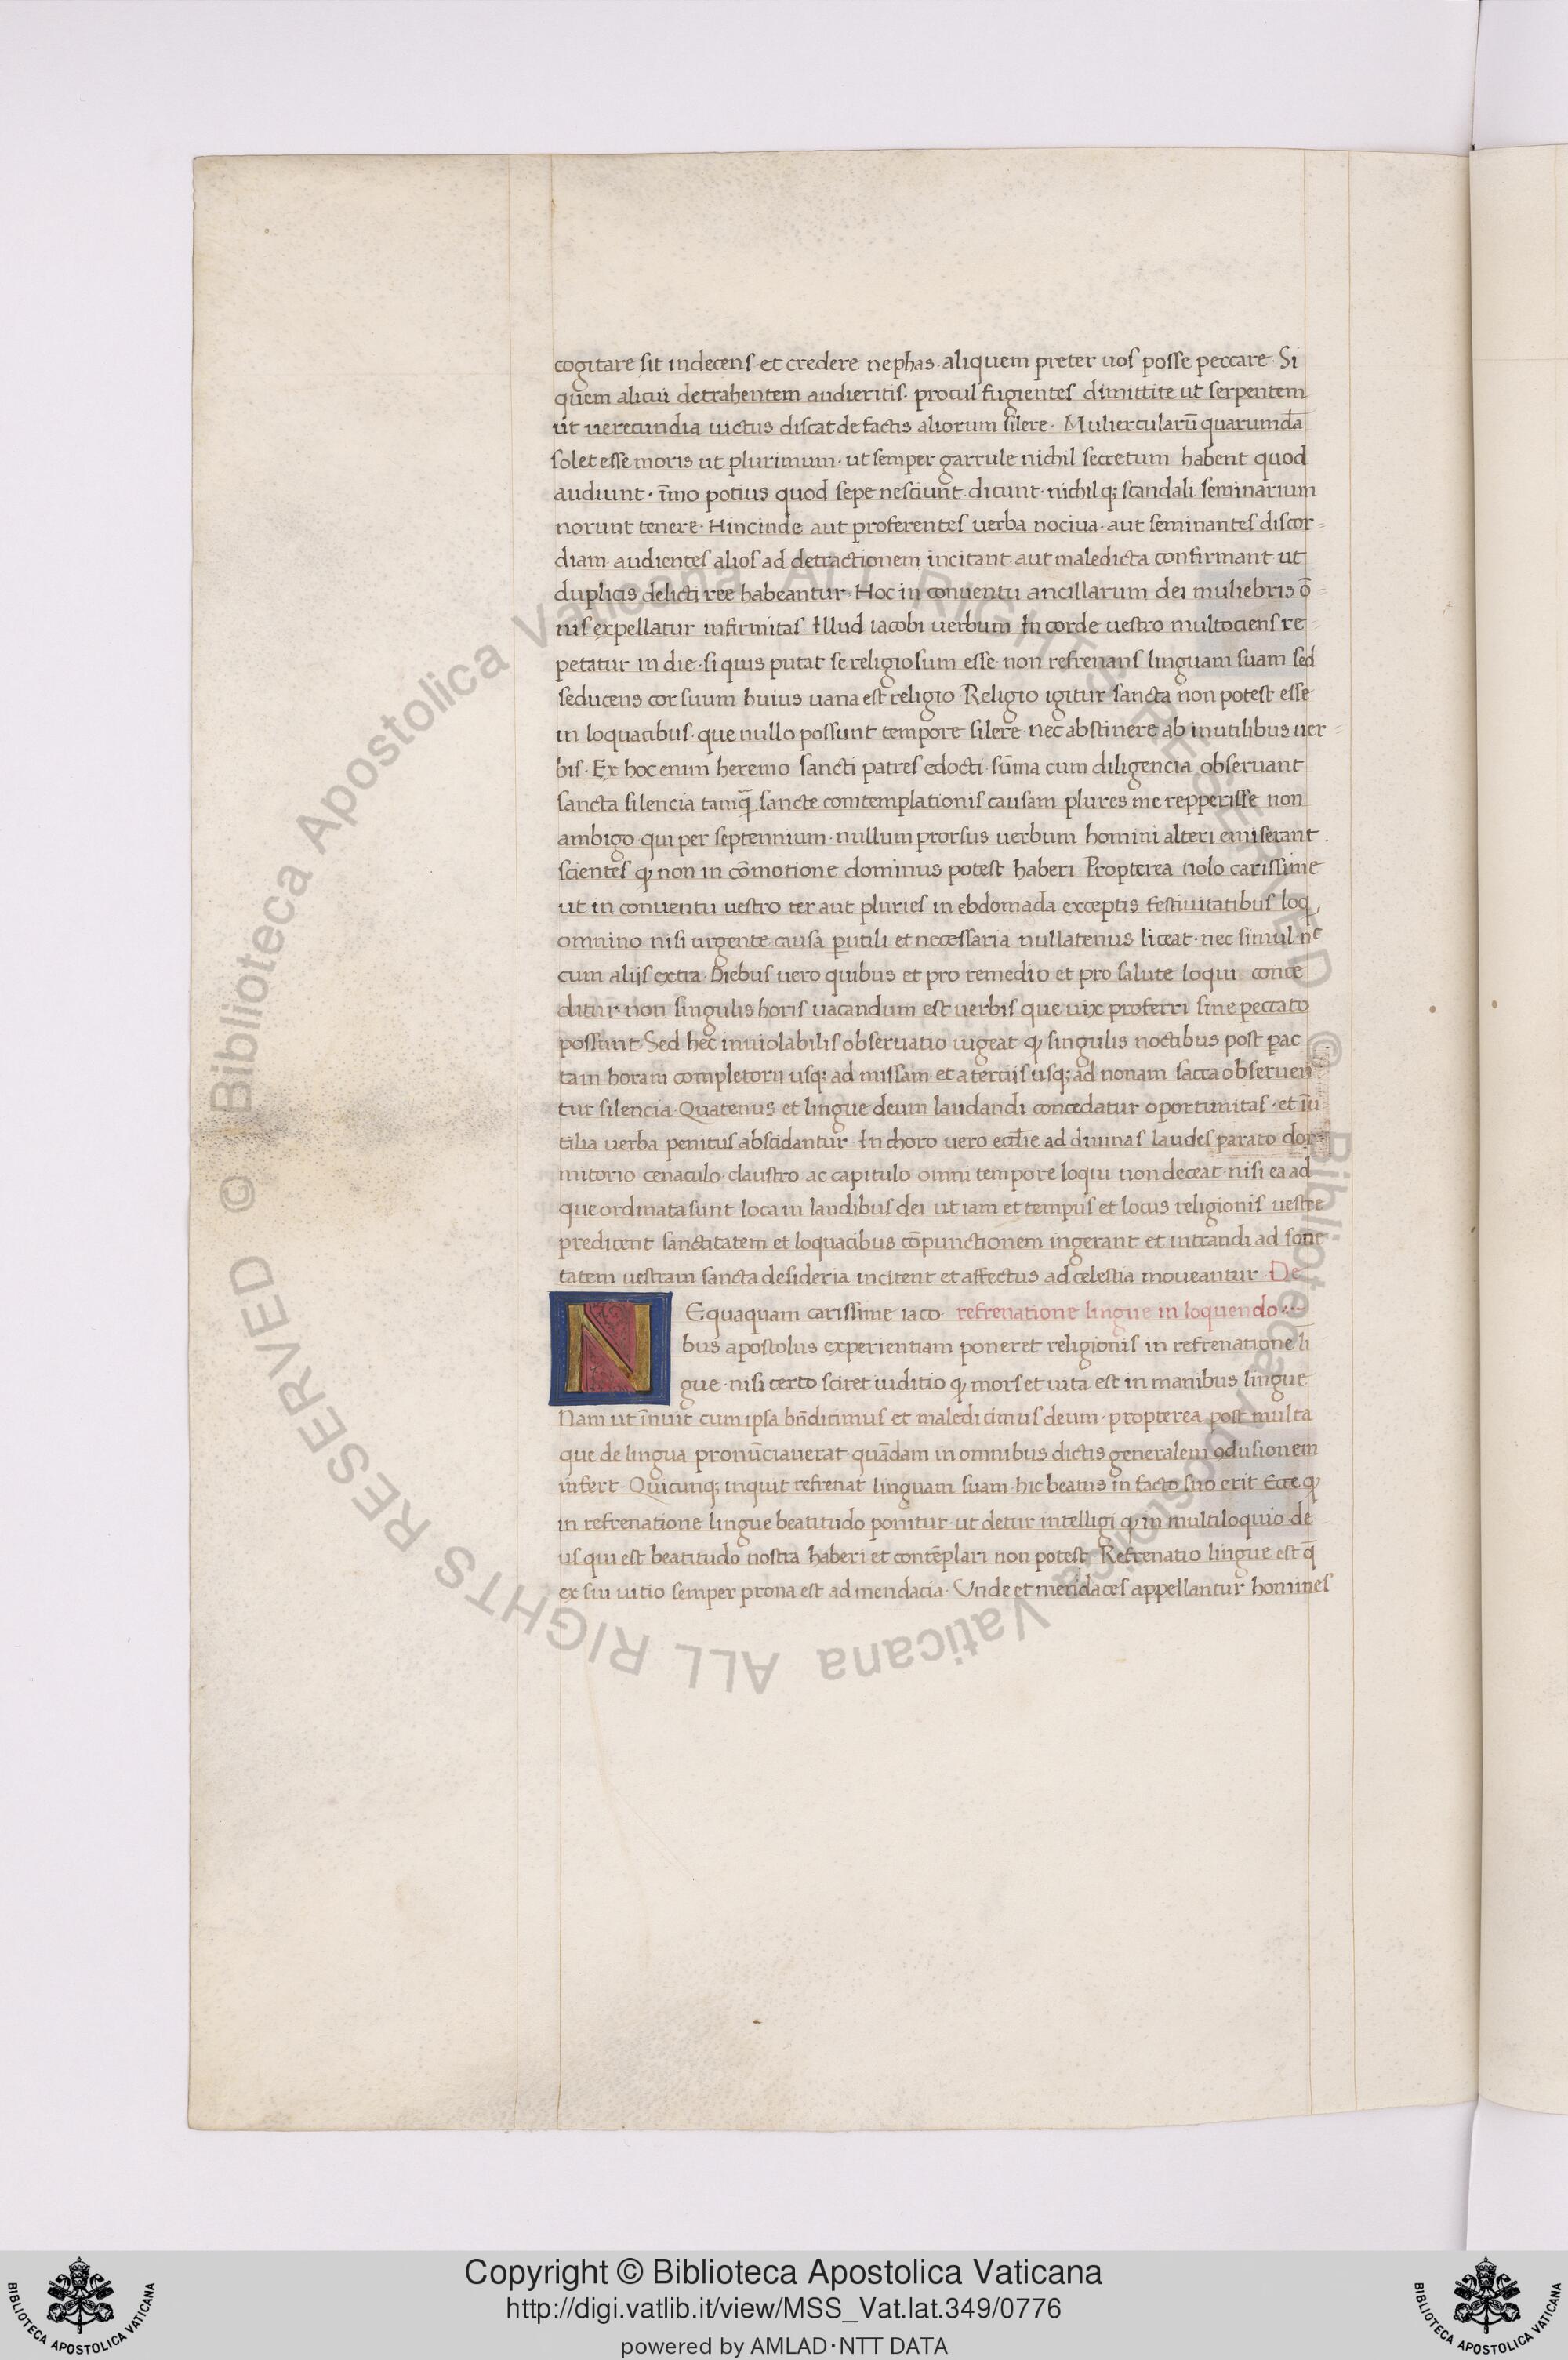 cogitare sit indecens · et credere nephas · aliquem preter uos posse peccare · Si
quem alicui detrahentem audieritis · procul fugientes dimittite ut serpentem
ut uerecundia uictus discat de factis aliorum silere · Muliercularū quarumda
solet esse moris ut plurimum · ut semper garrule nichil secretum habent quod
audiunt · īmo potius quod sepe nesciunt dicunt · nichilq; scandali seminarium
norunt tenere · Hincinde aut proferentes uerba nociua · aut seminantes discor=
diam · audientes alios ad detractionem incitant · aut maledicta confirmant ut
duplicis delicti ree habeantur · Hoc in conuentu ancillarum dei muliebris ō=
nis expellatur infirmitas · Illud iacobi uerbum In corde uestro multociens re=
petatur in die · si quis putat se religiosum esse non refrenans linguam suam sed
seducens cor suum huius uana est religio Religio igitur sancta non potest esse
in loquacibus · que nullo possunt tempore silere · nec abstinere ab inutilibus uer=
bis · Ex hoc enim heremo sancti patres edocti · sūma cum diligencia obseruant
sancta silencia tamq̄ sancte comtemplationis causam plures me repperisse non
ambigo qui per septennium · nullum prorsus uerbum homini alteri emiserant ·
scientes ꝙ non in cōmotione dominus potest haberi Propterea uolo carissime
ut in conuentu uestro ter aut pluries in ebdomada exceptis festiuitatibus loq,
omnino nisi urgente causa ꝑutili et necessaria nullatenus liceat · nec simul nc
cum alijs extra · Diebus uero quibus et pro remedio et pro salute loqui conce
ditur non singulis horis uacandum est uerbis que uix proferri sine peccato
possunt · Sed hec inuiolabilis obseruatio uigeat ꝙ singulis noctibus post ꝑac
tam horam completorii usq; ad missam · et a tertiis usq; ad nonam sacra obseruen
tur silencia · Quatenus et lingue deum laudandi concedatur oportunitas · et īu
tilia uerba penitus abscidantur · In choro uero eccl̄ie ad diuinas laudes parato dor=
mitorio cenaculo · claustro ac capitulo omni tempore loqui non deceat · nisi ea ad
que ordinata sunt loca in laudibus dei ut iam et tempus et locus religionis uestre
predicent sanctitatem et loquacibus cōpunctionem ingerant et intrandi ad socie
tatem uestram sancta desideria incitent et affectus ad celestia moueantur · De
NEquaquam carissime iaco refrenatione lingue in loquendo · : ·
bus apostolus experientiam poneret religionis in refrenatione li
gue · nisi certo sciret iuditio ꝙ mors et uita est in manibus lingue
Nam ut īnuit cum ipsa bn̄dicimus et maledicimus deum · propterea post multa
que de lingua pronūciauerat quādam in omnibus dictis generalem ↄclusionem
infert · Quicunq; inquit refrenat linguam suam · hic beatus in facto suo erit Ecce ꝙ
in refrenatione lingue beatitudo ponitur · ut detur intelligi ꝙ in multiloquio de
us qui est beatitudo nostra haberi et contēplari non potest Refrenatio lingue est q̄
ex sui uitio semper prona est ad mendacia · Unde et mendaces appellantur homines
© Biblioteca Apostolica Vaticana ALL RIGHTS RESERVED © Biblioteca Apostolica Vaticana ALL RIGHTS RESERVED
Copyright © Biblioteca Apostolica Vaticana
http://digi.vatlib.it/view/MSS_Vat.lat.349/0776
powered by AMLAD·NTT DATA
BIBLIOTECA APOSTOLICA VATICANA
BIBLIOTECA APOSTOLICA VATICANA